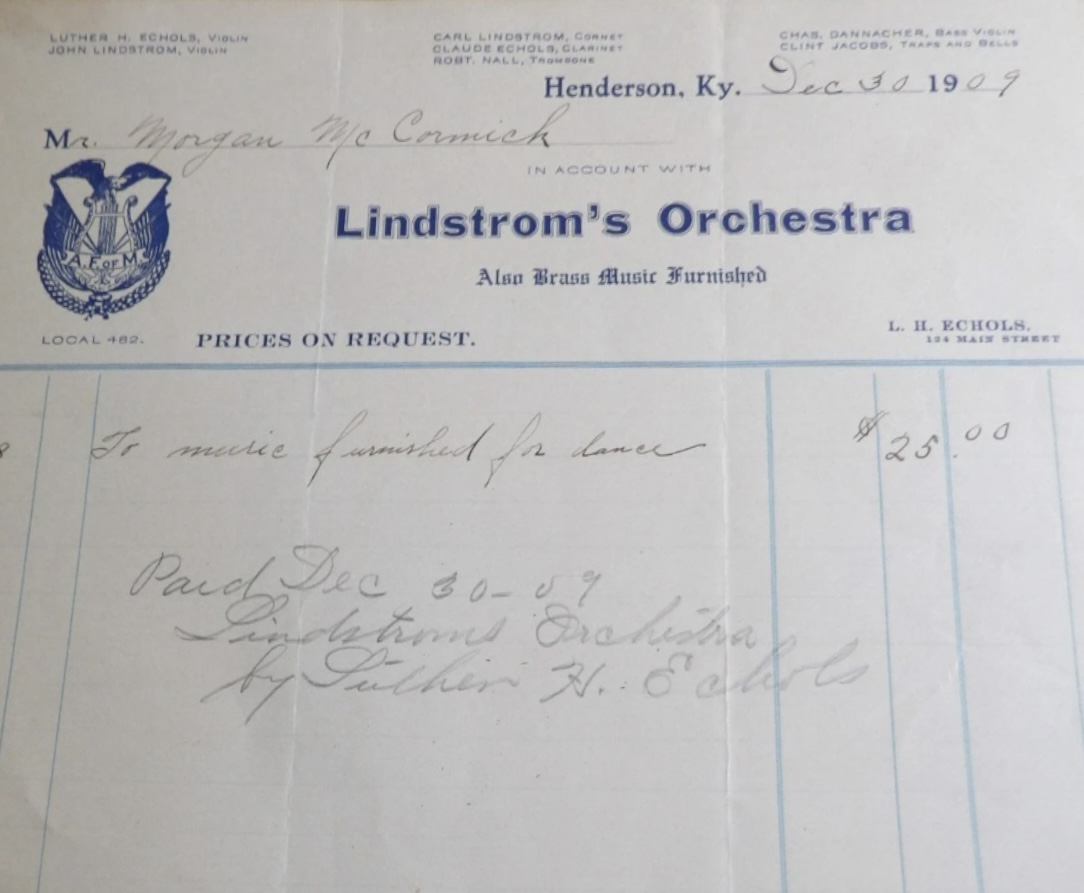 LUTHER H. ECHOLS, VIOLIN
JOHN LINDSTROM, VIOLIN
CARL LINDSTROM, CORNET
CLAUDE ECHOLS, CLARINET
ROBT. NALL, TROMBONE
CHAS. DANNACHER, BASS VIOLIN
CLINT JACOBS, TRAPS AND BELLS
Henderson, Ky. Dec 30 1909
Mr. Morgan McCormick
IN ACCOUNT WITH
Lindstrom's Orchestra
Also Brass Music Furnished
A.F. OF M.
LOCAL 462.
PRICES ON REQUEST.
L. H. ECHOLS.
124 MAIN STREET
To music furnished for dance $25.00
Paid Dec 30-09
Lindstroms Orchestra
by Luther H. Echols